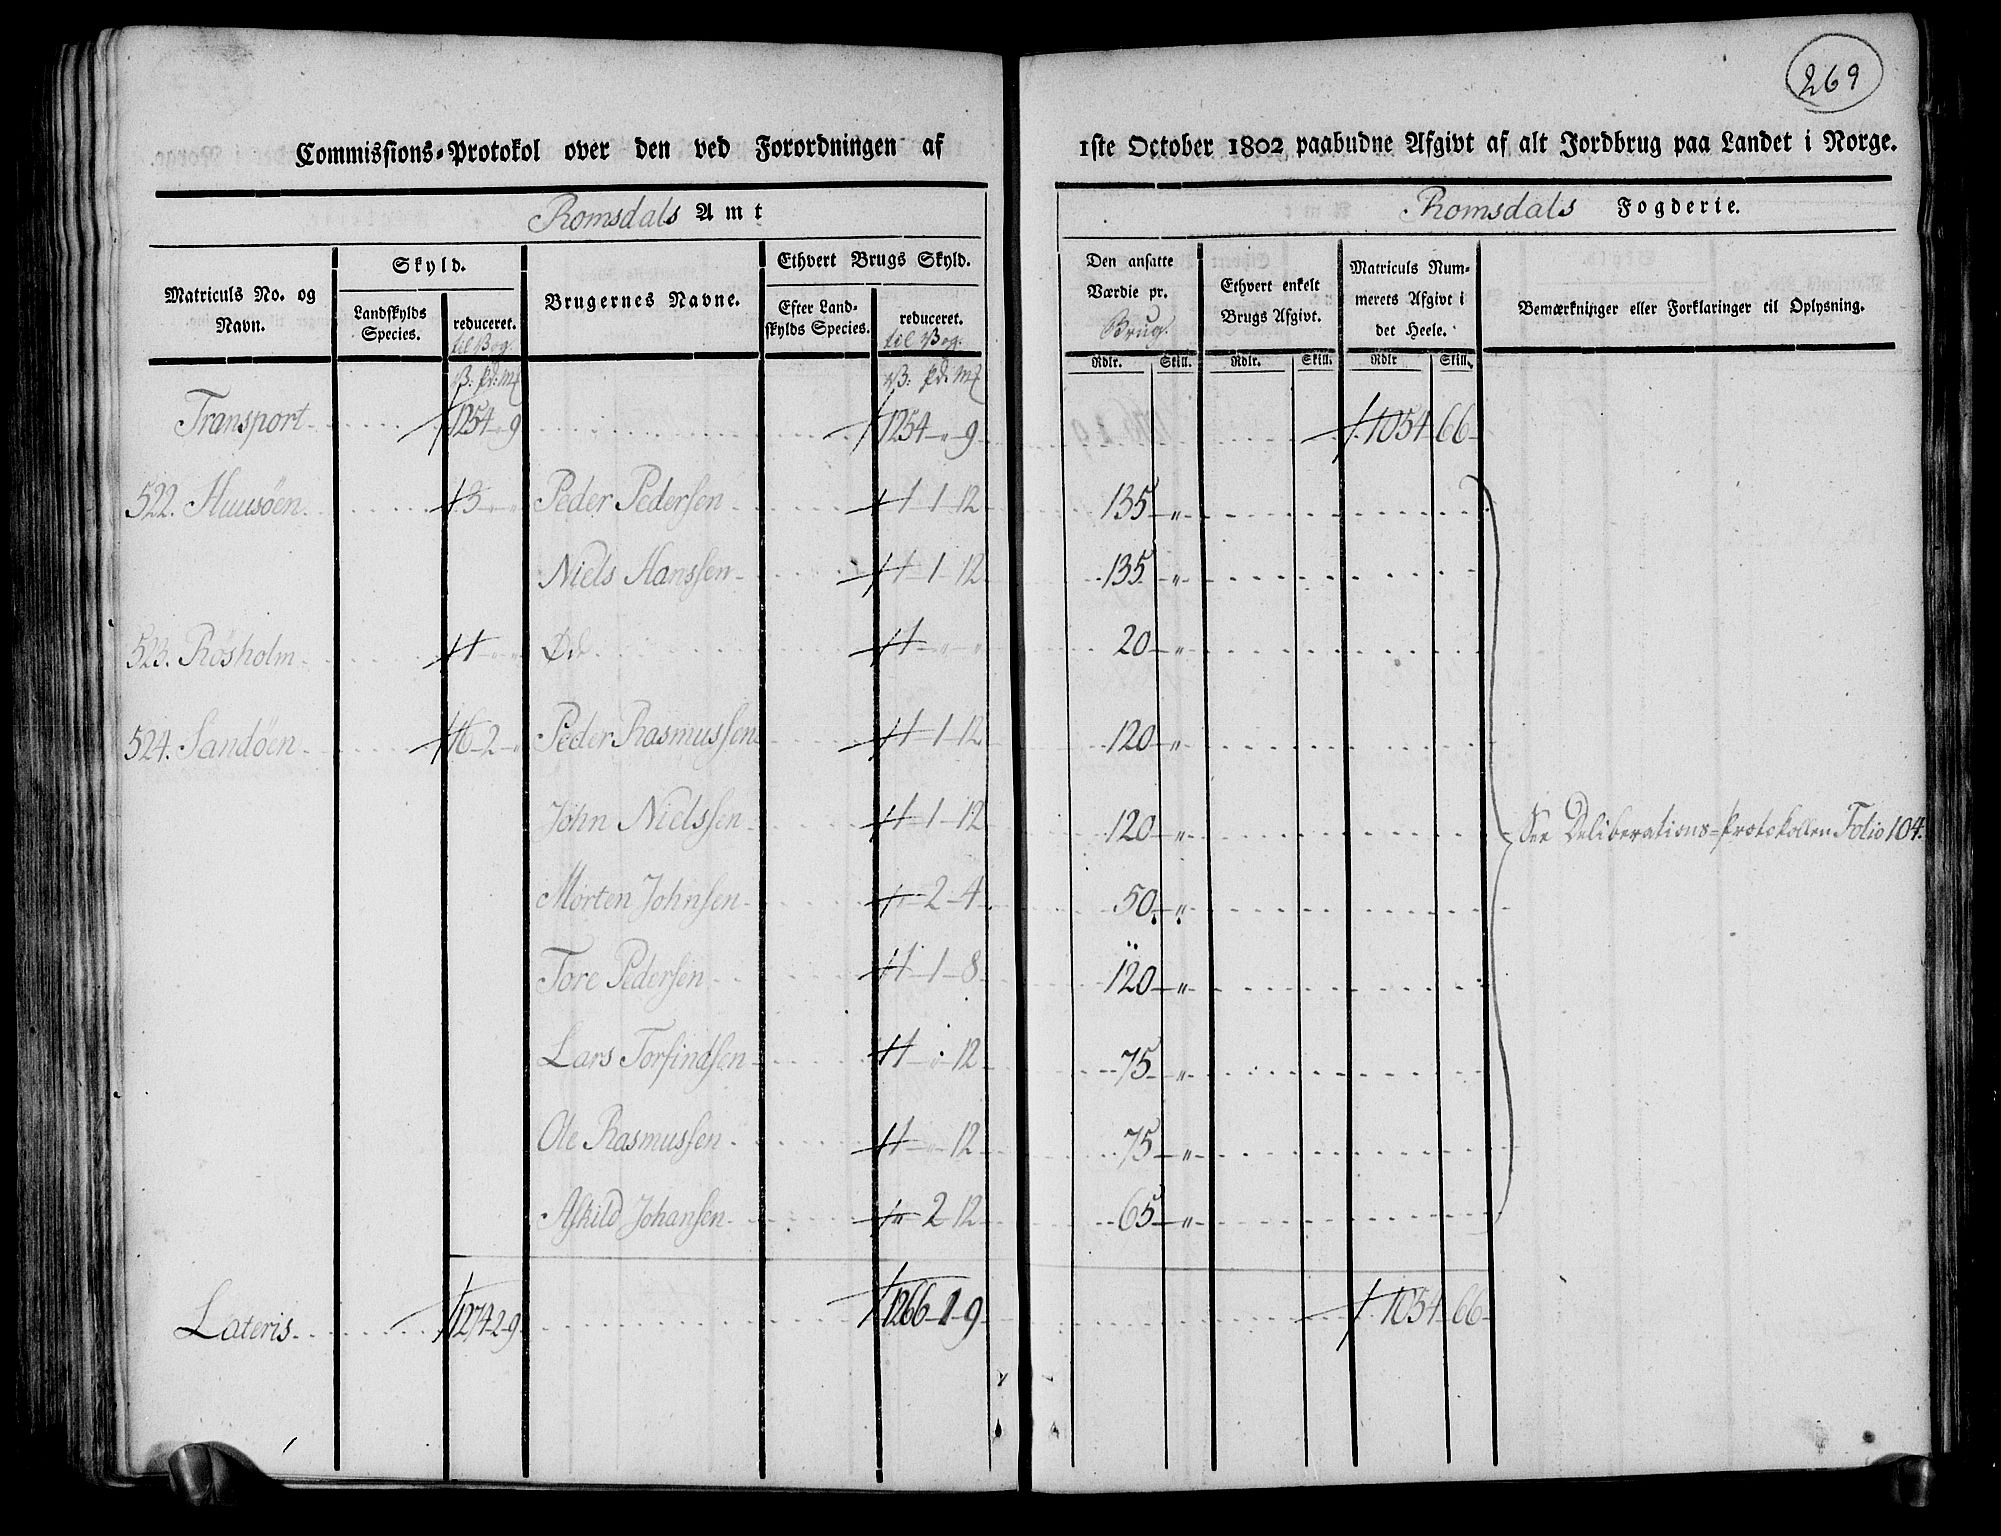 269
Commissions-Protokol over den ved Forordningen af 1ste October 1802 paabudne Afgivt af alt Jordbrug paa Landet i Norge.
Romsdals Amt Romsdals Fogderie.
Matriculs No. og Navn.
Skyld.
Landskylds Species.
reduceret.
til Vog.
Brugernes Navne.
Ethvert Brugs Skyld.
Efter Landskylds Species.
reduceret.
til Vog.
Den ansatte Værdie pr.
Brug.
Ethvert enkelt Brugs Afgivt.
Matriculs Nummerets Afgivt i det Heele.
Bemærkninger eller Forklaringer til Oplysning.
Rdlr. Skill. Rdlr. Skill. Rdlr Skill.
V: pd: Mk V: pd: Mk
Transport 1254 " 9 1254 " 9 1054 66
522. Huusöen 3 " " Peder Pedersen 1 1 12 135 "
Niels Hanssen 1 1 12 135 "
523. Rösholm 1 " " Öde 1 " " 20 "
524. Sandöen 16 2 " Peder Rasmussen 1 1 12 120 "
John Nielssen 1 1 12 120 "
See Deliberations-Protokollen Folio 104.
Morten Johnsen " 2 4 50 "
Tore Pedersen 1 1 8 120 "
Lars Torfindsen 1 " 12 75 "
Ole Rasmussen 1 " 12 75 "
Askild Johansen " 2 12 65 "
Lateris 1274 2 9 1266 1 9 1054 66